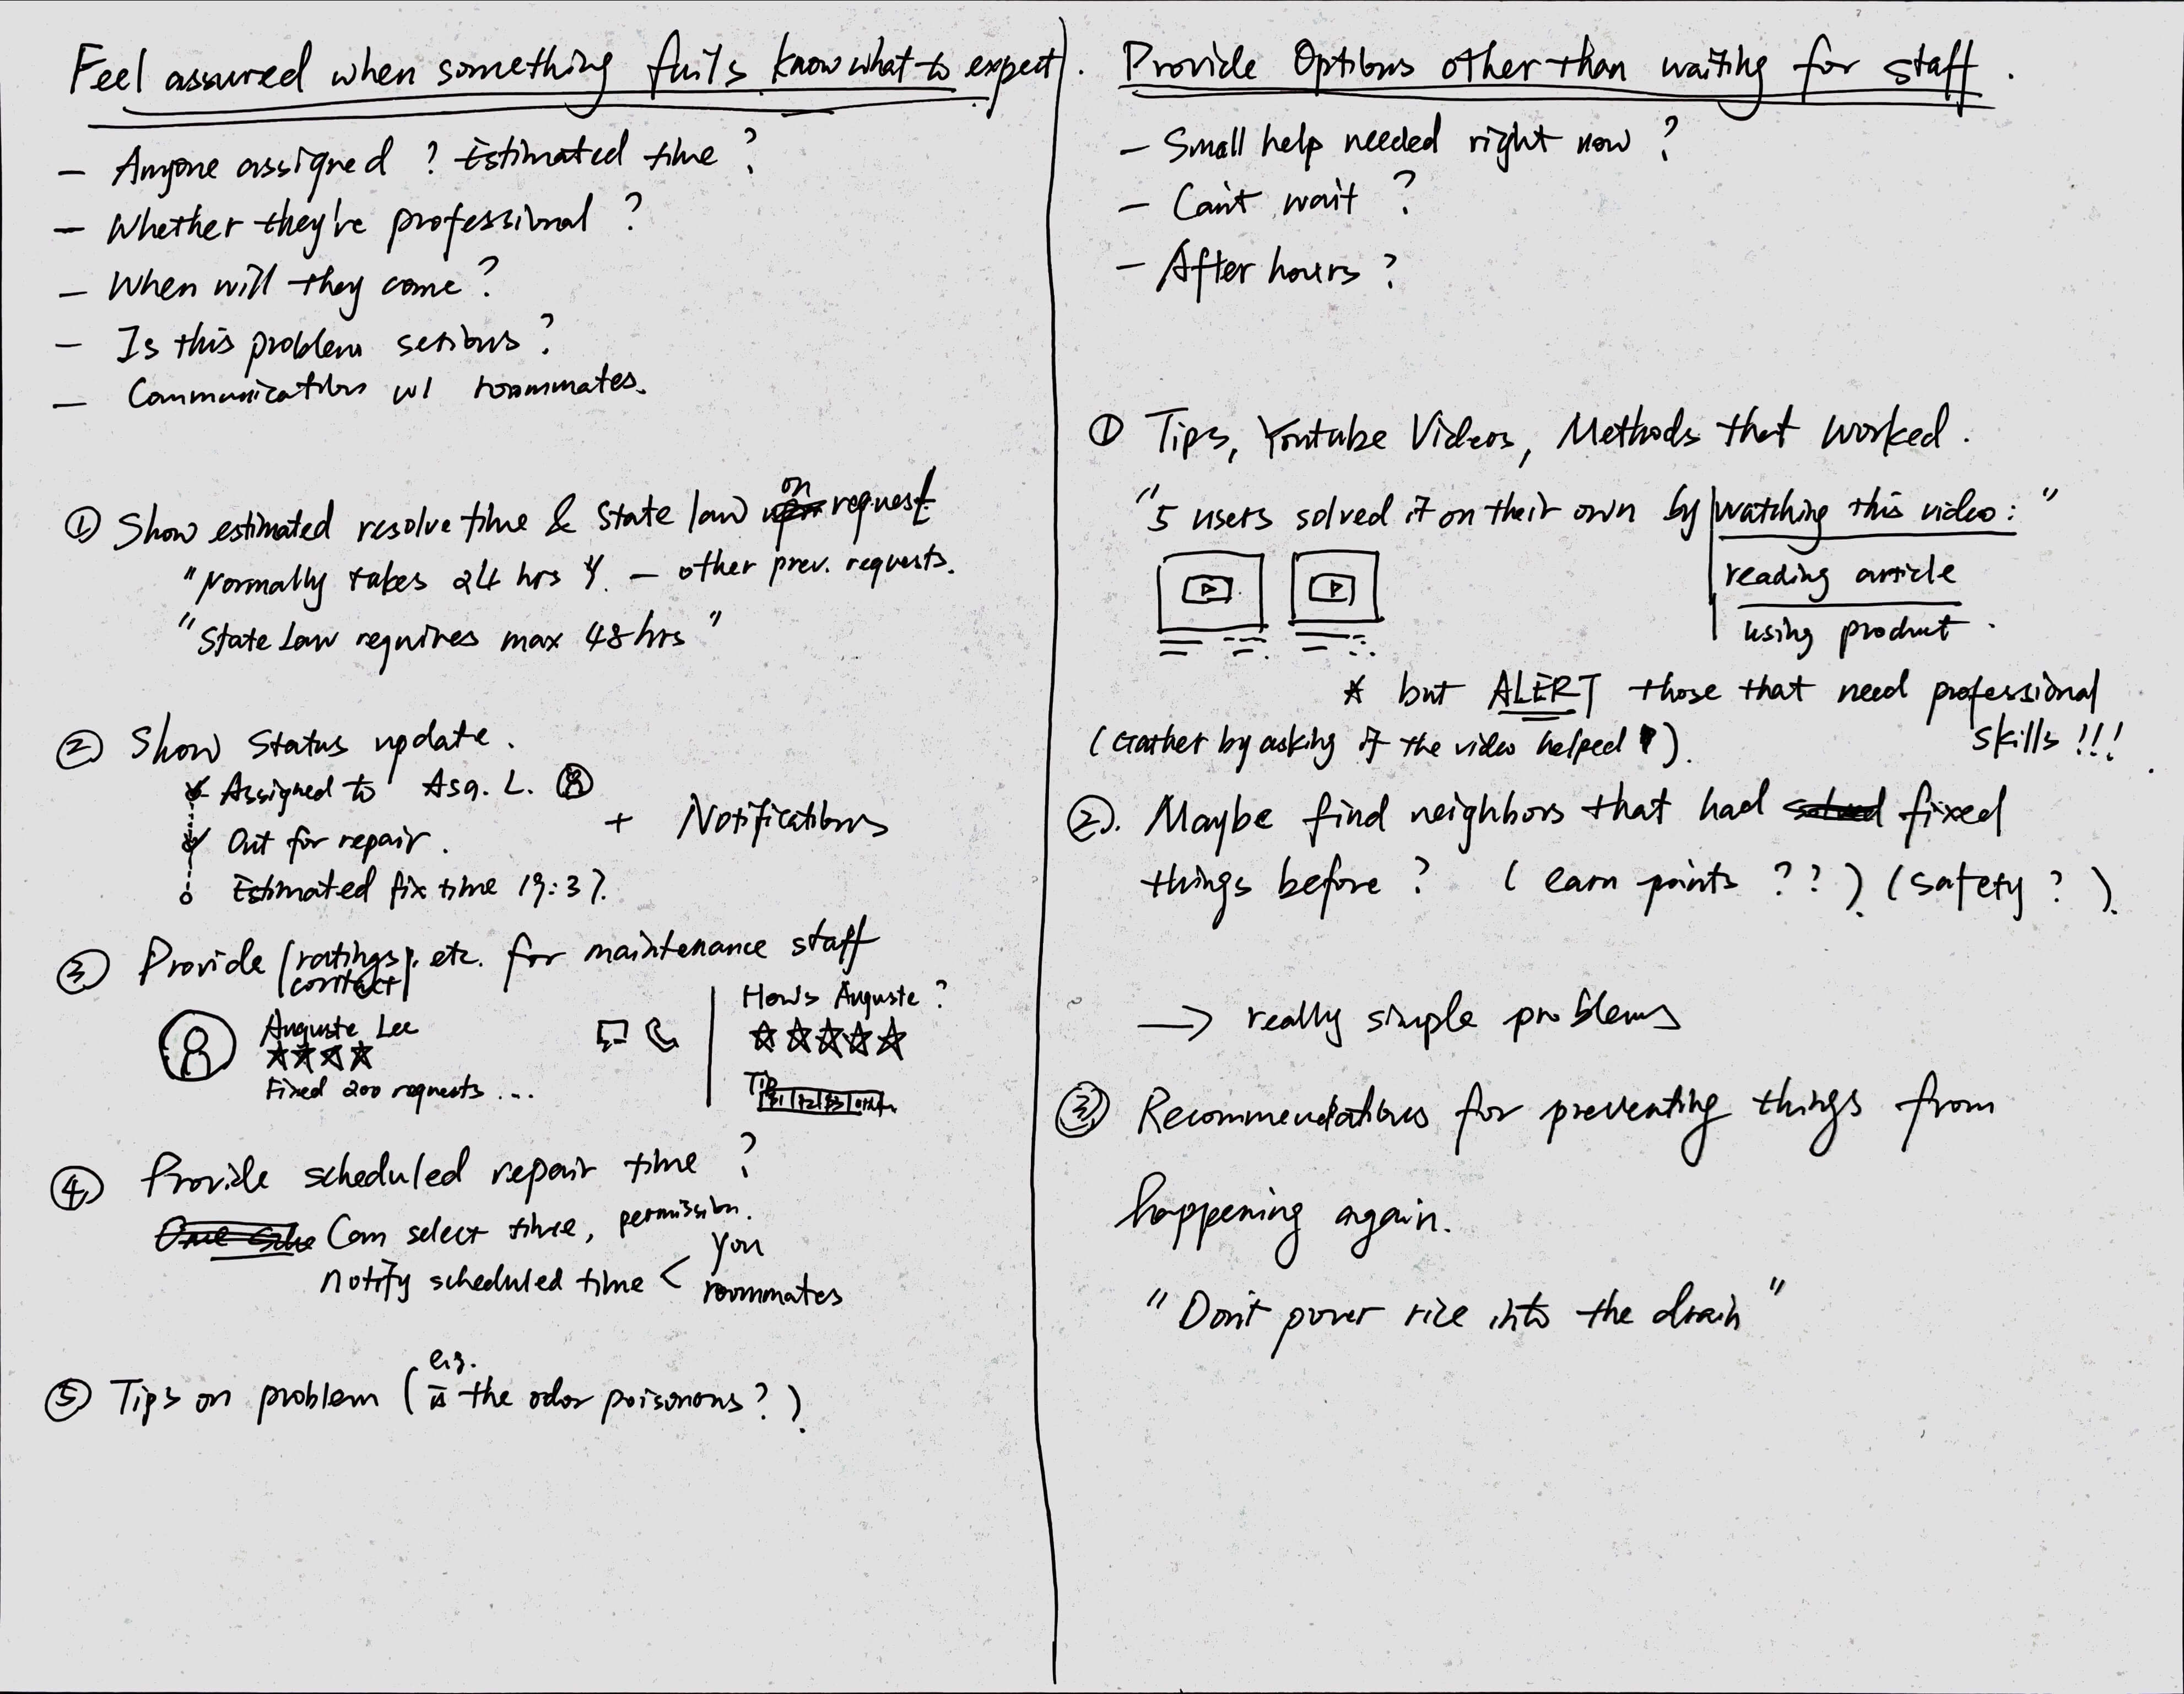 Feel assured when something fails, know what to expect.
- Anyone assigned? Estimated time?
- Whether they're professional?
- When will they come?
- Is this problem serious?
- Communications w/ roommates.
① Show estimated resolve time & State law on request
"Normally takes 24 hrs". - other prev. requests.
"State Law requires max 48 hrs"
② Show Status update.
Assigned to Asq. L.
Out for repair.
Estimated fix time 19:37.
+ Notifications
③ Provide ratings, etc. for maintenance staff
contact
Auguste Lee
Fixed 200 requests...
How's Auguste?
Tip
$1 $2 $3 other
④ Provide scheduled repair time?
Can select time, permission.
notify scheduled time < you
roommates
⑤ Tips on problem (e.g. is the odor poisonous?)
Provide Options other than waiting for staff.
- Small help needed right now?
- Can't wait?
- After hours?
① Tips, Youtube Videos, Methods that worked.
"5 users solved it on their own by watching this video:"
reading article
using product.
* but ALERT those that need professional
skills!!!
(Gather by asking if the video helped).
②. Maybe find neighbors that had fixed
things before? (earn points??) (safety?).
→ really simple problems
③ Recommendations for preventing things from
happening again.
"Don't pover rice into the drain"